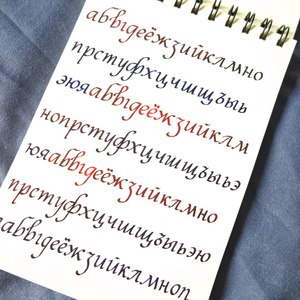 абвгдеёжзийклмно
прстуфхцчшщъыь
эюяабвгдеёжзийклм
нопрстуфхцчшщъыьэ
юяабвгдеёжзийклмно
прстуфхцчшщъыьэю
яабвгдеёжзийклмноп